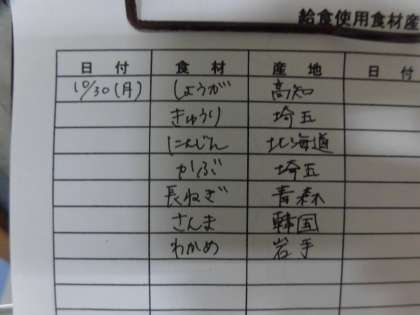 給食使用食材産
日付 食材 産地 日付
10/30(月) しょうが 高知
きゅうり 埼玉
にんじん 北海道
かぶ 埼玉
長ねぎ 青森
さんま 韓国
わかめ 岩手